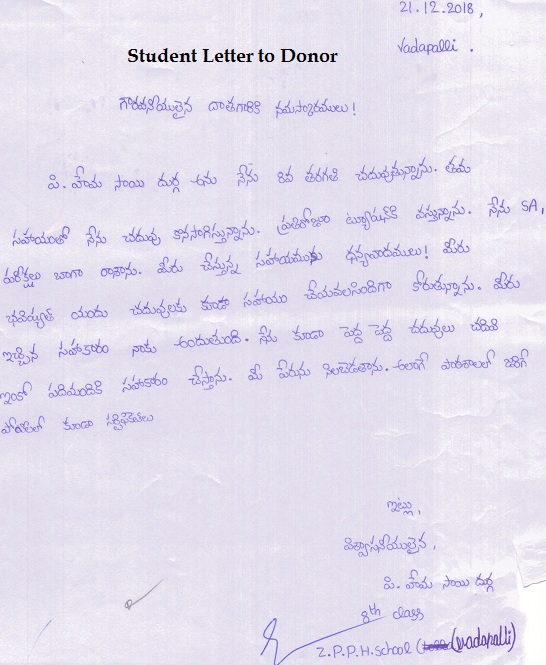 21.12.2018,
Vadapalli.
Student Letter to Donor
గౌరవనీయులైన దాతగారికి నమస్కారములు!
పి. హేమ సాయి దుర్గ అను నేను 8వ తరగతి చదువుతున్నాను. తమ
సహాయంతో నేను చదువు కొనసాగిస్తున్నాను. ప్రతిరోజూ ట్యూషన్‌కి వస్తున్నాను. నేను SA1
పరీక్షలు బాగా రాశాను. మీరు చేస్తున్న సహాయమునకు ధన్యవాదములు! మీరు
భవిష్యత్ యందు చదువులకు కూడా సహాయం చేయవలసిందిగా కోరుతున్నాను. మీరు
ఇచ్చిన సహాకారం నాకు అందుతుంది. నేను కూడా పెద్ద పెద్ద చదువులు చదివి
ఇంకో పదిమందికి సహకారం చేస్తాను. మీ పేరును నిలబెడతాను. అలాగే పాఠశాలలో జరిగే
పోటీలలో కుండా
ఇట్లు,
విశ్వాసనీయులైన,
పి. హేమ సాయి దుర్గ
8th class
Z.P.P.H.School (Vadapalli)